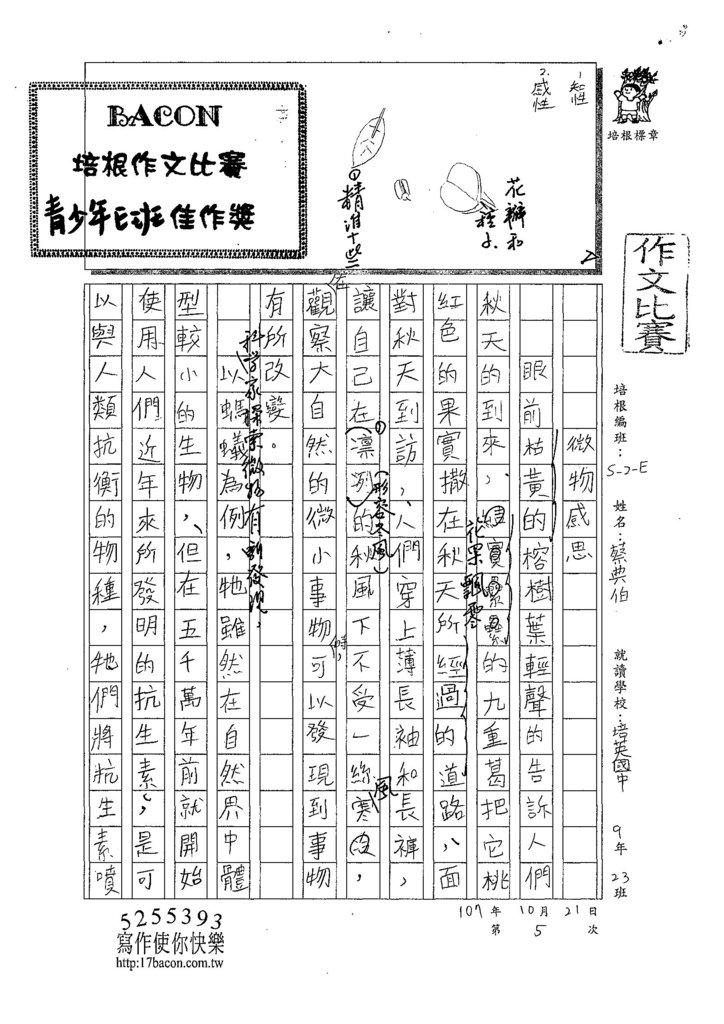 BACON
培根作文比賽
青少年E班佳作獎
1.知性
2.感性
①精准一些
花瓣和
培根標章
作文比賽
培根編班：S-2-E
姓名：蔡典伯
就讀學校：培英國中
9年23班
107年10月21日
第5次
微物感思
眼前枯黃的榕樹葉輕聲的告訴人們
秋天的到來，結實纍纍的九重葛把它桃
紅色的果實撒在秋天所經過的道路，面
對秋天到訪，人們穿上薄長袖和長褲，
讓自己在凜冽的秋風下不受一絲寒風，
觀察大自然的微小事物可以發現到事物
有所改變。
以螞蟻為例，牠雖然在自然界中體
型較小的生物，但在五千萬年前就開始
使用人們近年來所發明的抗生素，是可
以與人類抗衡的物種，牠們將抗生素噴
花果飄零
①(形容冬風)
在
時，
風
科學家探索微物有新發現，
5255393
寫作使你快樂
http:17bacon.com.tw